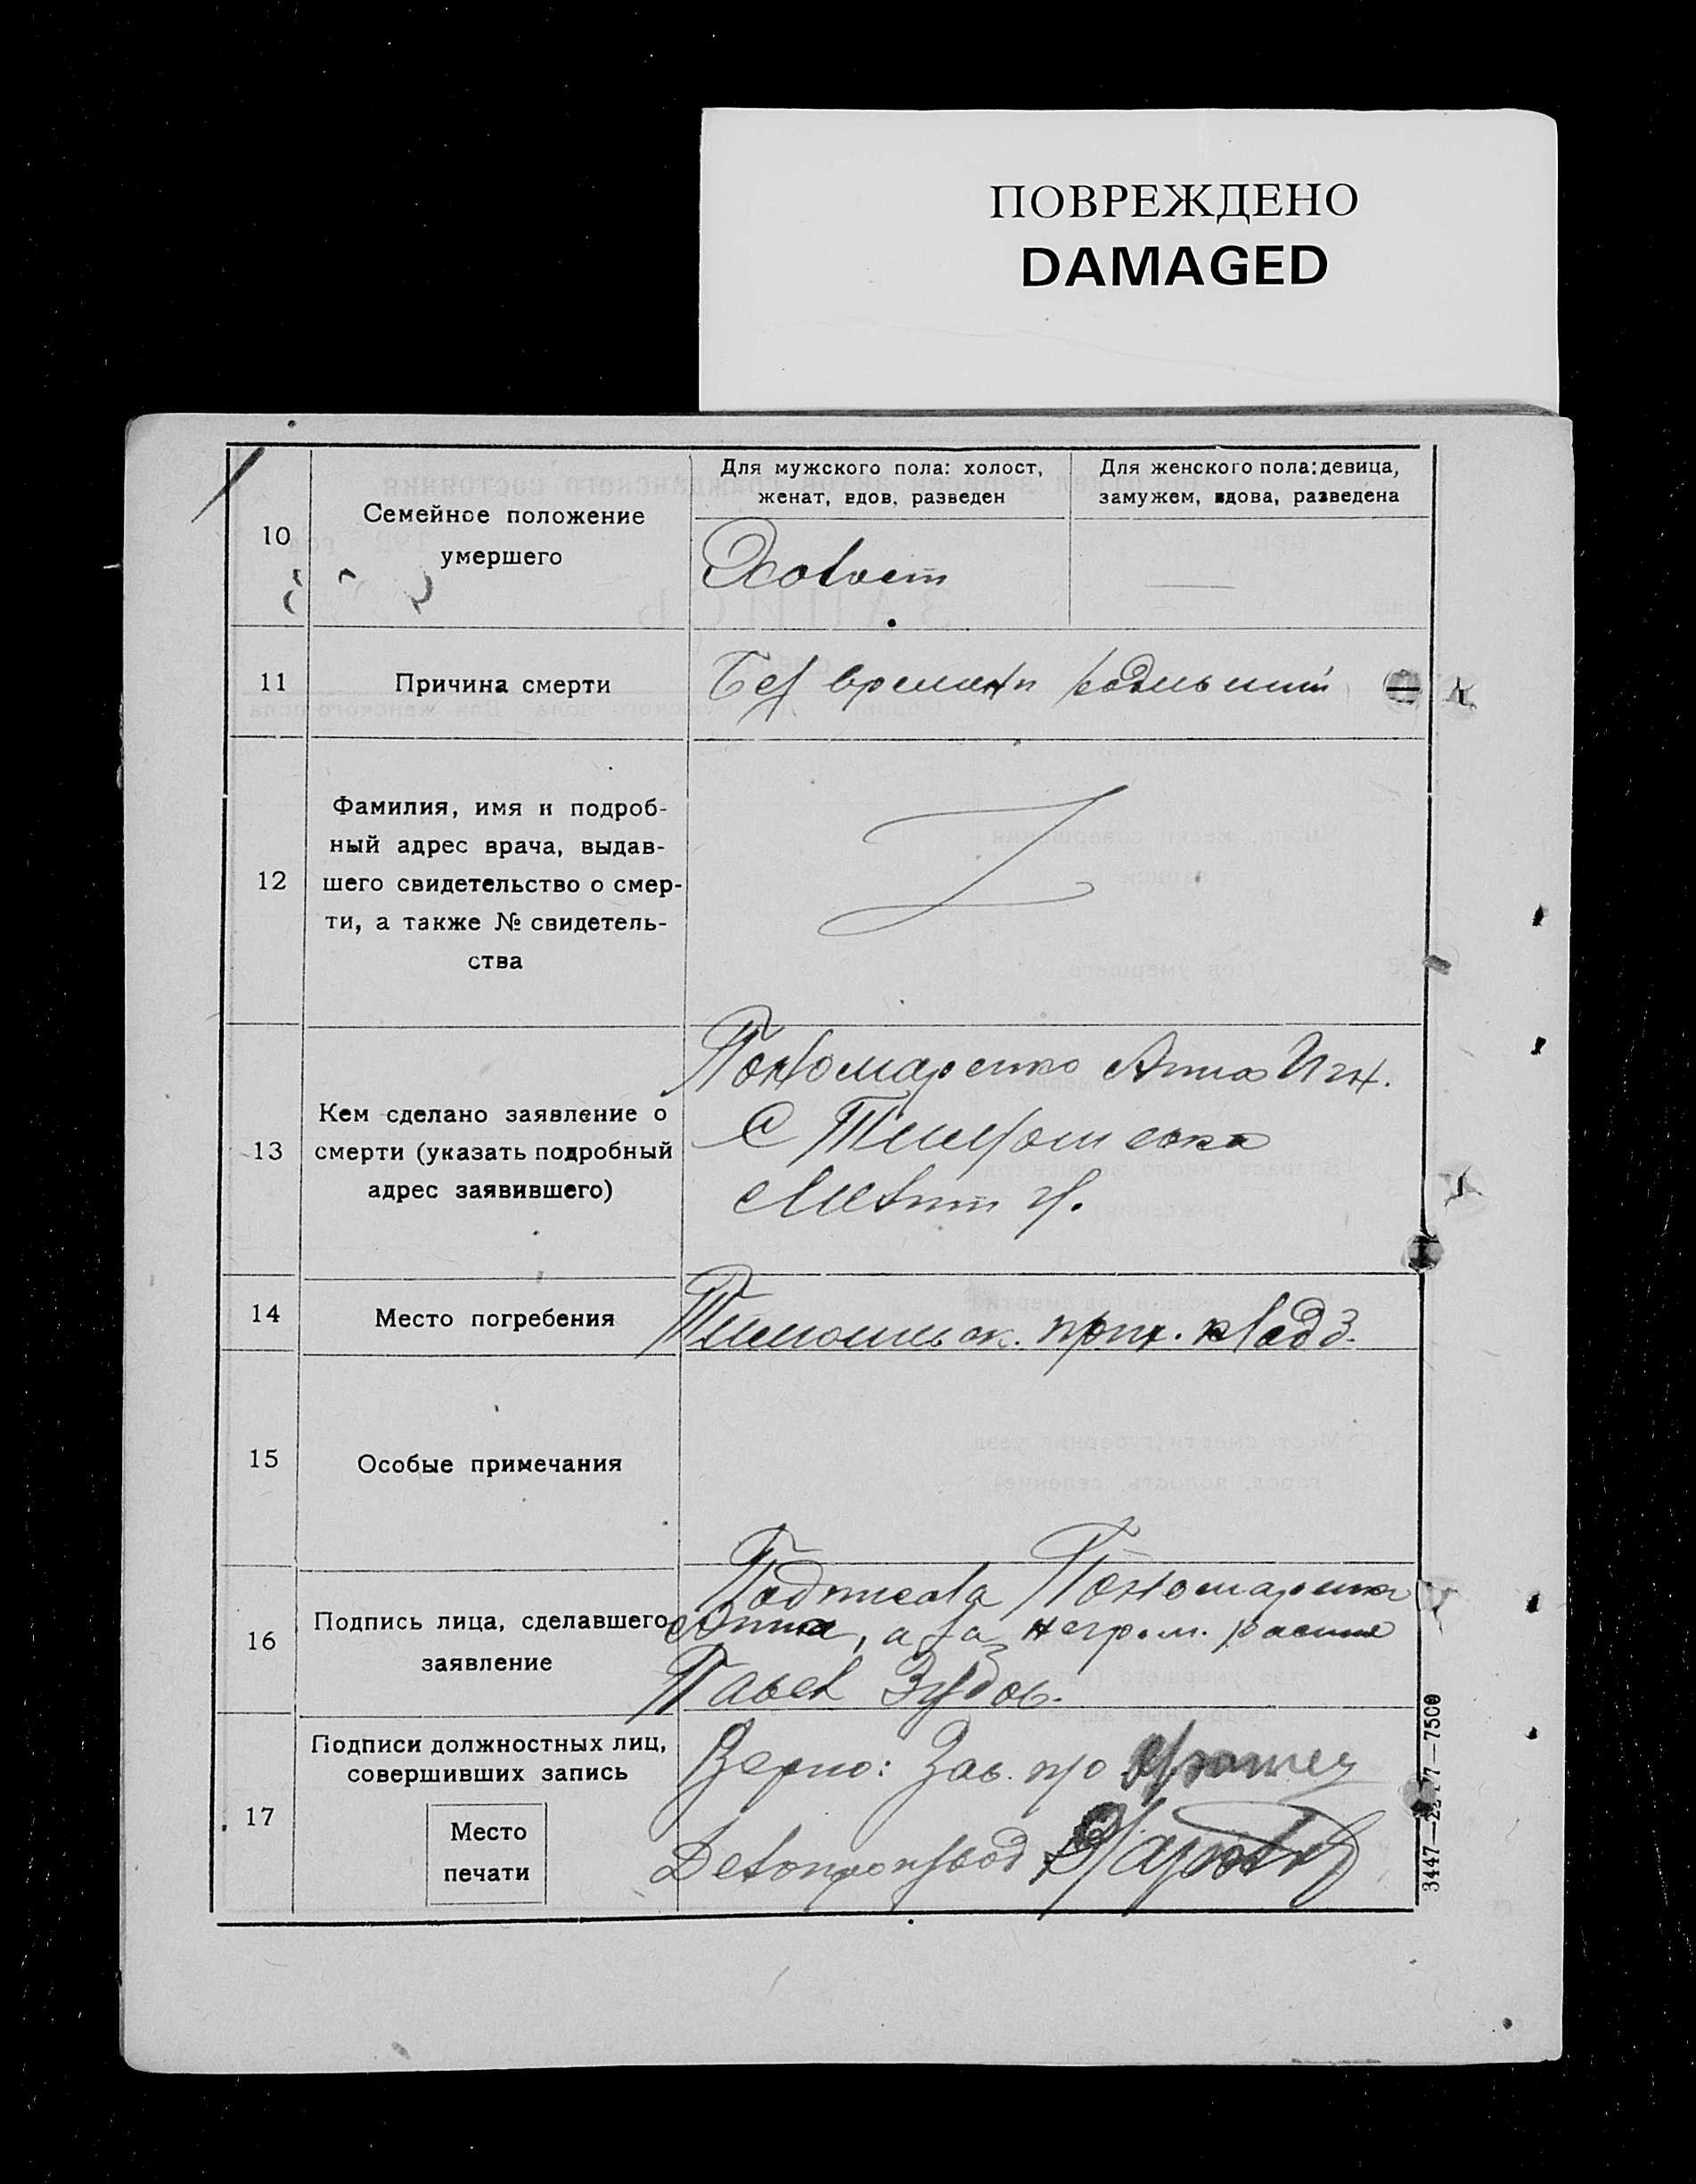 ПОВРЕЖДЕНО
DAMAGED
10
Семейное положение
умершего
Для мужского пола: холост,
женат, вдов, разведен
Для женского пола: девица,
замужем, вдова, разведена
Холост
11
Причина смерти
Без времени
12
Фамилия, имя и подроб-
ный адрес врача, выдав-
шего свидетельство о смер-
ти, а также № свидетель-
ства
13
Кем сделано заявление о
смерти (указать подробный
адрес заявившего)
Пономаренко Анна Игн.
С
14
Место погребения
кладб.
15
Особые примечания
16
Подпись лица, сделавшего
заявление
Подписала Пономаренко
Анна, а за неграм.
Павел Зубов.
17
Подписи должностных лиц,
совершивших запись
Место
печати
Верно: Зав. п/о
Делопроизвод
3447—2277—7500